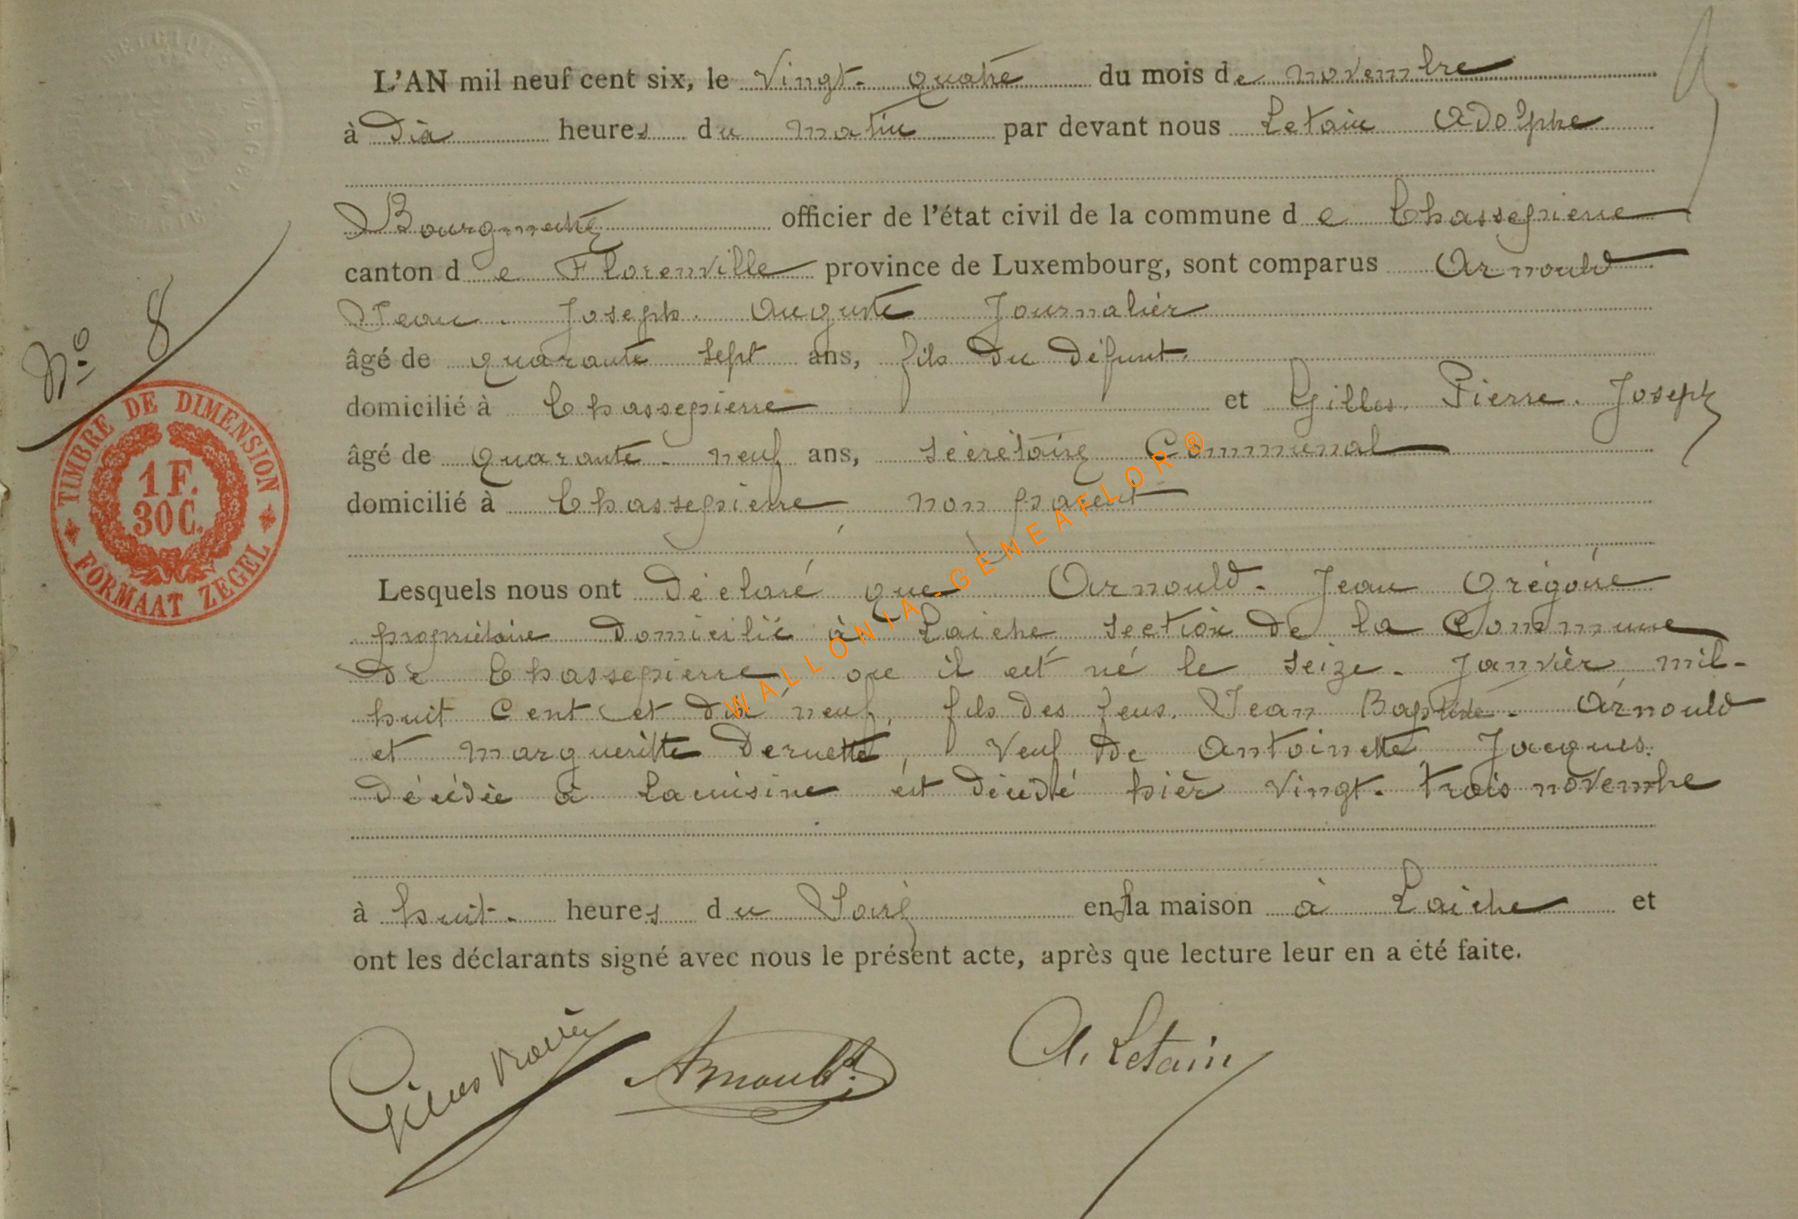 BELGIQUE
L'AN mil neuf cent six, le Vingt-quatre du mois de novembre
à Dix heures du matin par devant nous Letain Adolphe
Bourgmestre officier de l'état civil de la commune de Chassepierre
canton de Florenville province de Luxembourg, sont comparus Arnould
Jean-Joseph-Auguste Journalier
âgé de quarante sept ans, fils du défunt.
domicilié à Chassepierre et Gilles. Pierre. Joseph
âgé de quarante-neuf ans, secrétaire Communal
domicilié à Chassepierre, non parent
Lesquels nous ont Déclaré que Arnould-Jean Grégoire
propriétaire Domicilié à Laiche, section de la Commune
de Chassepierre, où il est né le seize-Janvier mil-
huit cent et dix neuf, fils des feus. Jean Baptiste-Arnould
et Marguerite Dernette, Veuf de Antoinette Jacques.
Décédée à Lacuisine est décédé hier vingt-trois novembre
à huit. heures du Soir, en la maison à Laiche et
ont les déclarants signé avec nous le présent acte, après que lecture leur en a été faite.
Gilles Arnould A. Letain
N° 8
TIMBRE DE DIMENSION
1 F.
30 C.
FORMAAT ZEGEL
WALLONIA-GENEAFLOR®